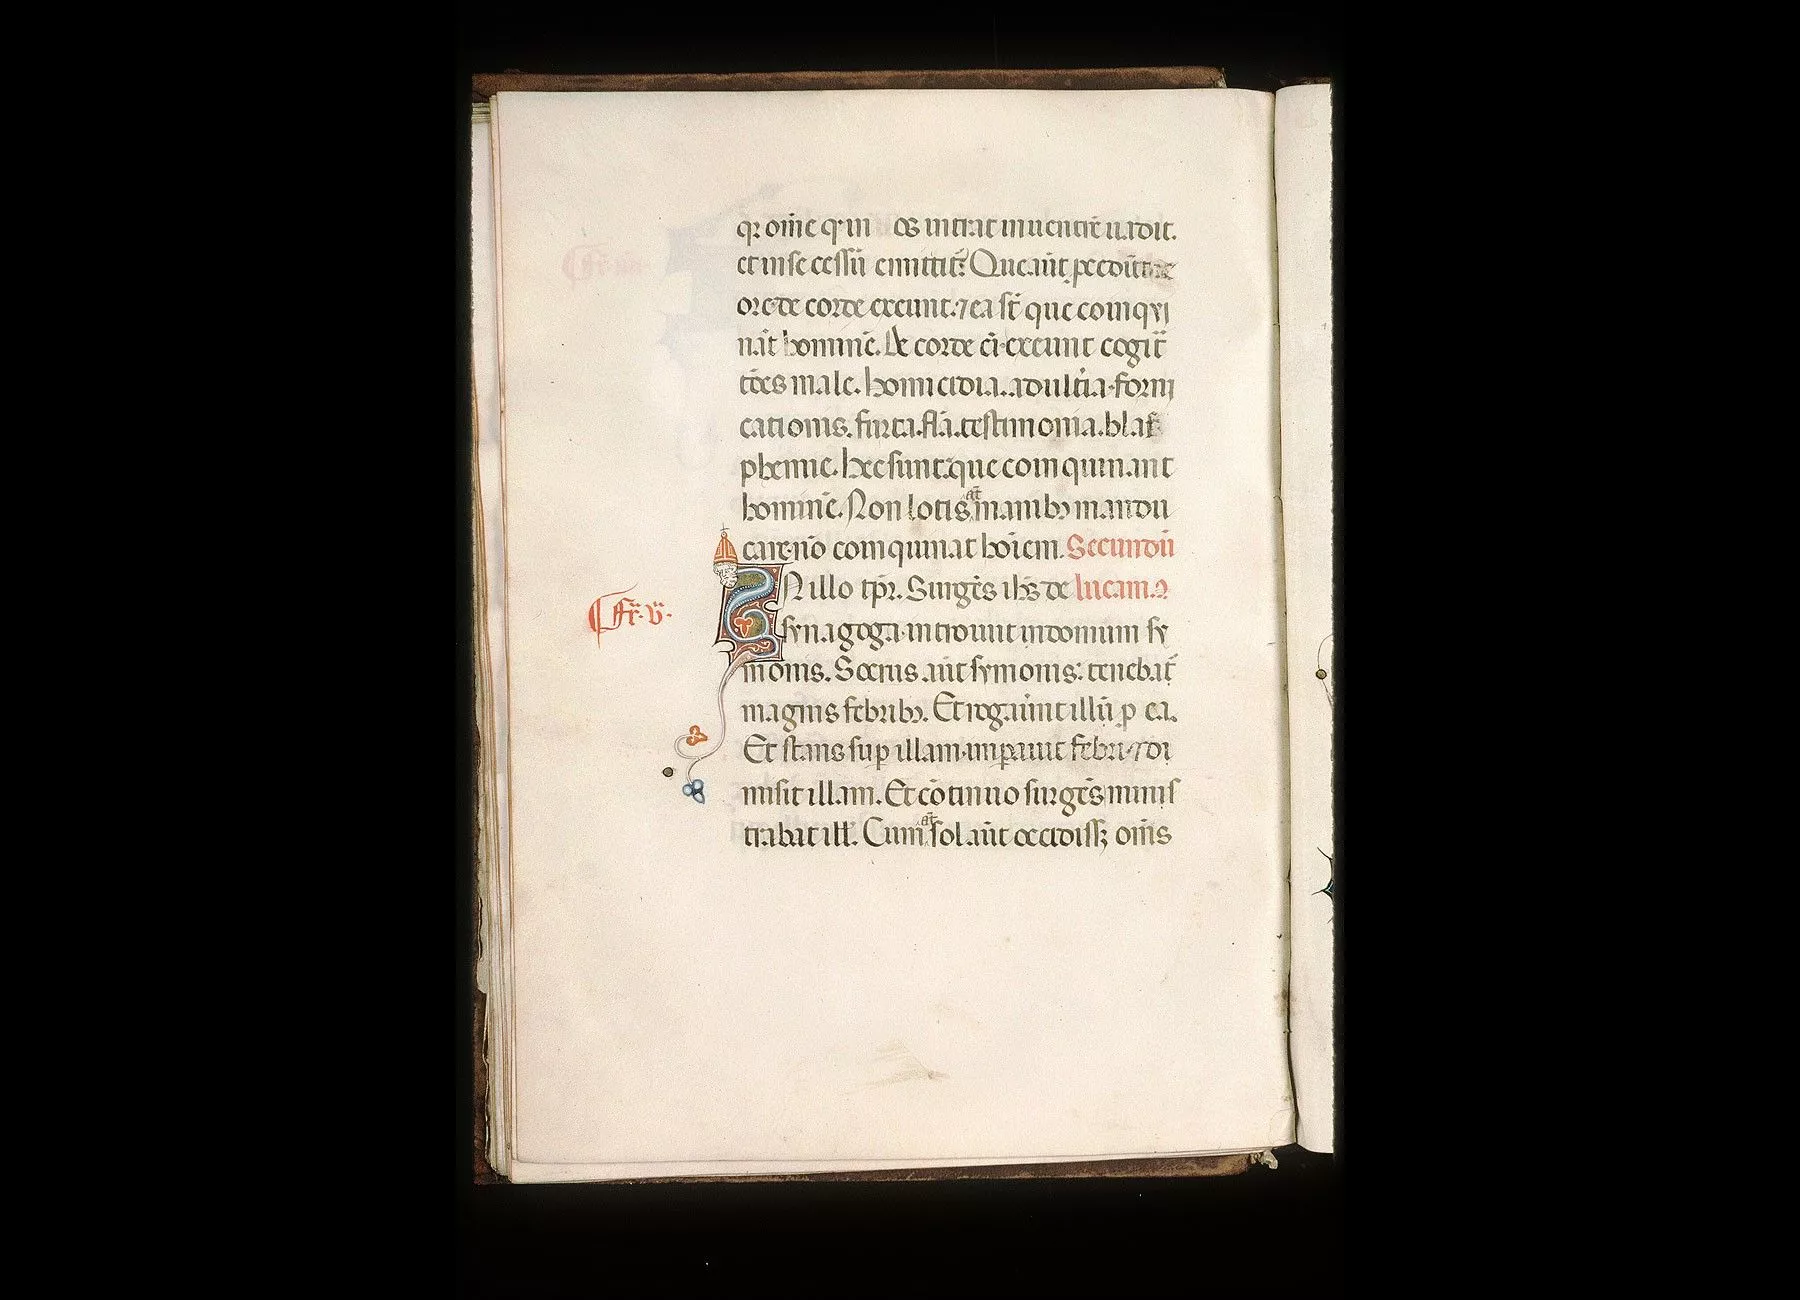 qr om̄e q in os intrat in uentrē uadit.
et in secessū emittit̄. Que aūt ꝓcedūt de
ore de corde exeunt. ⁊ ea st̄ que coinqui
nāt hominē. De corde ei exeunt cogit
tōes male. homicidia. adultia. forni
cationis. furta. flā. testimonia. blas
phemie. hec sunt que coinquinant
hominē. Non lotis at̄ manibꝰ mandu
care nō coinquinat hoīem. Secundū
IN illo tp̄r. Surgēs ihs de lucam.
Fr̄. v̄.
synagoga introiuit in domum sy
monis. Socrus aūt symonis: tenebat̄
magnis febribꝰ. Et rogauērt illū ꝓ ea.
Et stans sup̄ illam imꝑauit febri ⁊ di
misit illam. Et cōtinuo surgēs minis
trabat ill̄. Cum at̄ sol aūt occidissꝫ om̄s